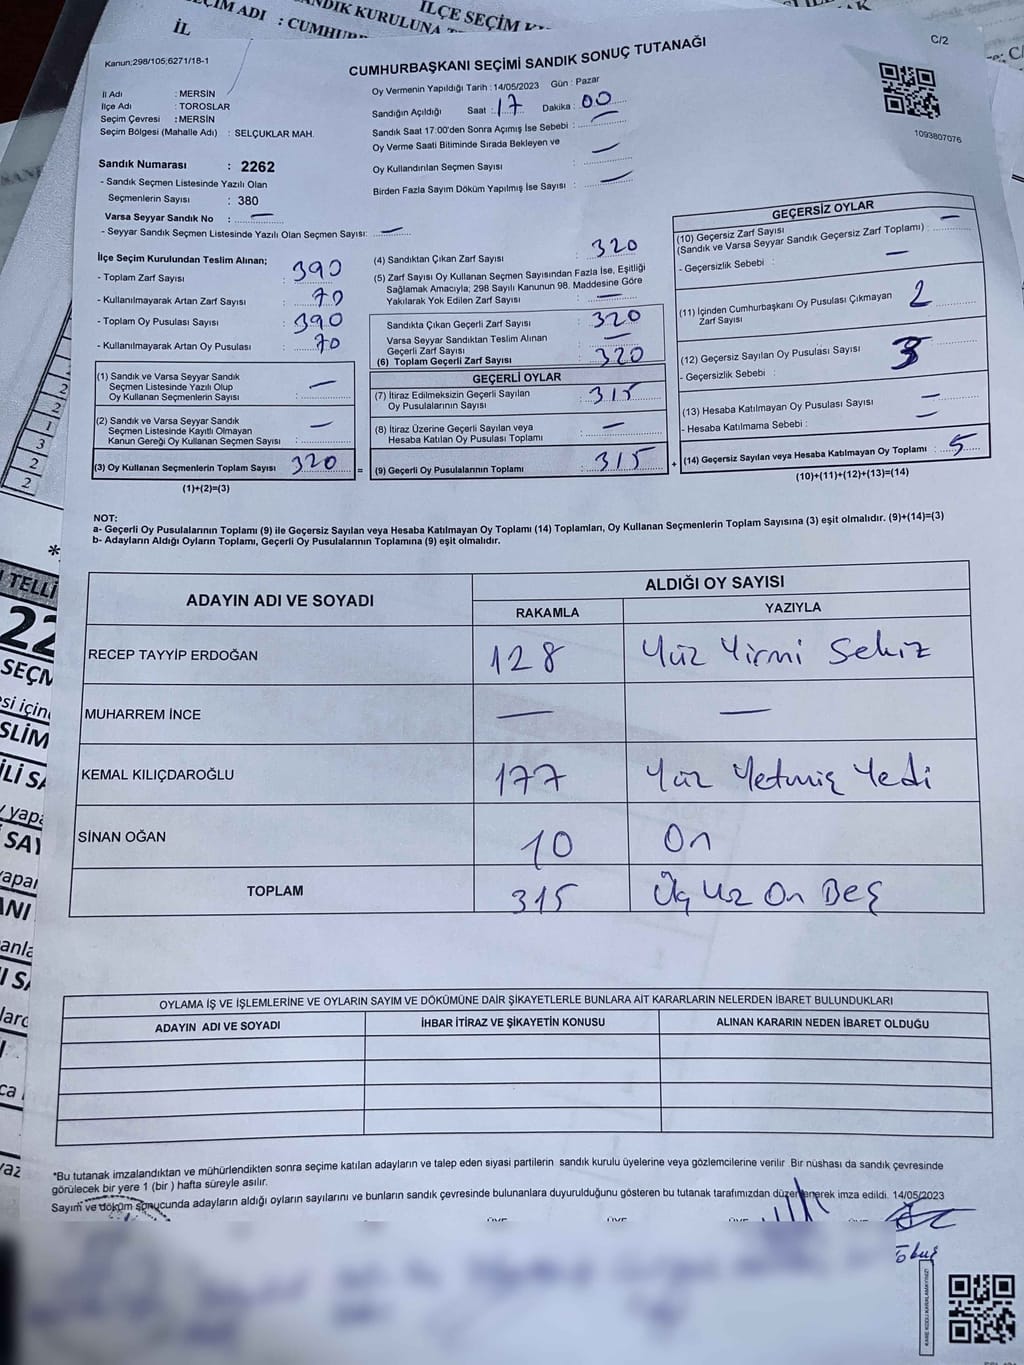 İLÇE SEÇİM
SANDIK KURULUNA
SEÇİM ADI : CUMHUR
İL
C/2
Kanun;298/105;6271/18-1
CUMHURBAŞKANI SEÇİMİ SANDIK SONUÇ TUTANAĞI
İl Adı : MERSİN
İlçe Adı : TOROSLAR
Seçim Çevresi : MERSİN
Seçim Bölgesi (Mahalle Adı) : SELÇUKLAR MAH.
Oy Vermenin Yapıldığı Tarih : 14/05/2023 Gün : Pazar
Sandığın Açıldığı Saat : 17 Dakika : 00
Sandık Saat 17:00'den Sonra Açımış İse Sebebi : —
Oy Verme Saati Bitiminde Sırada Bekleyen ve
Oy Kullandırılan Seçmen Sayısı : —
Birden Fazla Sayım Döküm Yapılmış İse Sayısı : —
1093807076
Sandık Numarası : 2262
- Sandık Seçmen Listesinde Yazılı Olan
Seçmenlerin Sayısı : 380
Varsa Seyyar Sandık No : —
- Seyyar Sandık Seçmen Listesinde Yazılı Olan Seçmen Sayısı: —
İlçe Seçim Kurulundan Teslim Alınan;
- Toplam Zarf Sayısı : 390
- Kullanılmayarak Artan Zarf Sayısı : 70
- Toplam Oy Pusulası Sayısı : 390
- Kullanılmayarak Artan Oy Pusulası : 70
(1) Sandık ve Varsa Seyyar Sandık
Seçmen Listesinde Yazılı Olup
Oy Kullanan Seçmenlerin Sayısı : —
(2) Sandık ve Varsa Seyyar Sandık
Seçmen Listesinde Kayıtlı Olmayan
Kanun Gereği Oy Kullanan Seçmen Sayısı : —
(3) Oy Kullanan Seçmenlerin Toplam Sayısı : 320
(1)+(2)=(3)
(4) Sandıktan Çıkan Zarf Sayısı : 320
(5) Zarf Sayısı Oy Kullanan Seçmen Sayısından Fazla İse, Eşitliği
Sağlamak Amacıyla; 298 Sayılı Kanunun 98. Maddesine Göre
Yakılarak Yok Edilen Zarf Sayısı : —
Sandıkta Çıkan Geçerli Zarf Sayısı : 320
Varsa Seyyar Sandıktan Teslim Alınan
Geçerli Zarf Sayısı : —
(6) Toplam Geçerli Zarf Sayısı : 320
GEÇERLİ OYLAR
(7) İtiraz Edilmeksizin Geçerli Sayılan
Oy Pusulalarının Sayısı : 315
(8) İtiraz Üzerine Geçerli Sayılan veya
Hesaba Katılan Oy Pusulası Toplamı : —
= (9) Geçerli Oy Pusulalarının Toplamı : 315
GEÇERSİZ OYLAR
(10) Geçersiz Zarf Sayısı
(Sandık ve Varsa Seyyar Sandık Geçersiz Zarf Toplamı) : —
- Geçersizlik Sebebi : —
(11) İçinden Cumhurbaşkanı Oy Pusulası Çıkmayan
Zarf Sayısı : 2
(12) Geçersiz Sayılan Oy Pusulası Sayısı : 3
- Geçersizlik Sebebi :
(13) Hesaba Katılmayan Oy Pusulası Sayısı : —
- Hesaba Katılmama Sebebi : —
+ (14) Geçersiz Sayılan veya Hesaba Katılmayan Oy Toplamı : 5
(10)+(11)+(12)+(13)=(14)
NOT:
a- Geçerli Oy Pusulalarının Toplamı (9) ile Geçersiz Sayılan veya Hesaba Katılmayan Oy Toplamı (14) Toplamları, Oy Kullanan Seçmenlerin Toplam Sayısına (3) eşit olmalıdır. (9)+(14)=(3)
b- Adayların Aldığı Oyların Toplamı, Geçerli Oy Pusulalarının Toplamına (9) eşit olmalıdır.
ADAYIN ADI VE SOYADI
ALDIĞI OY SAYISI
RAKAMLA YAZIYLA
RECEP TAYYİP ERDOĞAN 128 Yüz Yirmi Sekiz
MUHARREM İNCE — —
KEMAL KILIÇDAROĞLU 177 Yüz Yetmiş Yedi
SİNAN OĞAN 10 On
TOPLAM 315 Üç Yüz On Beş
OYLAMA İŞ VE İŞLEMLERİNE VE OYLARIN SAYIM VE DÖKÜMÜNE DAİR ŞİKAYETLERLE BUNLARA AİT KARARLARIN NELERDEN İBARET BULUNDUKLARI
ADAYIN ADI VE SOYADI İHBAR İTİRAZ VE ŞİKAYETİN KONUSU ALINAN KARARIN NEDEN İBARET OLDUĞU
*Bu tutanak imzalandıktan ve mühürlendikten sonra seçime katılan adayların ve talep eden siyasi partilerin sandık kurulu üyelerine veya gözlemcilerine verilir Bir nüshası da sandık çevresinde
görülecek bir yere 1 (bir ) hafta süreyle asılır.
Sayım ve döküm sonucunda adayların aldığı oyların sayılarını ve bunların sandık çevresinde bulunanlara duyurulduğunu gösteren bu tutanak tarafımızdan düzenlenerek imza edildi. 14/05/2023